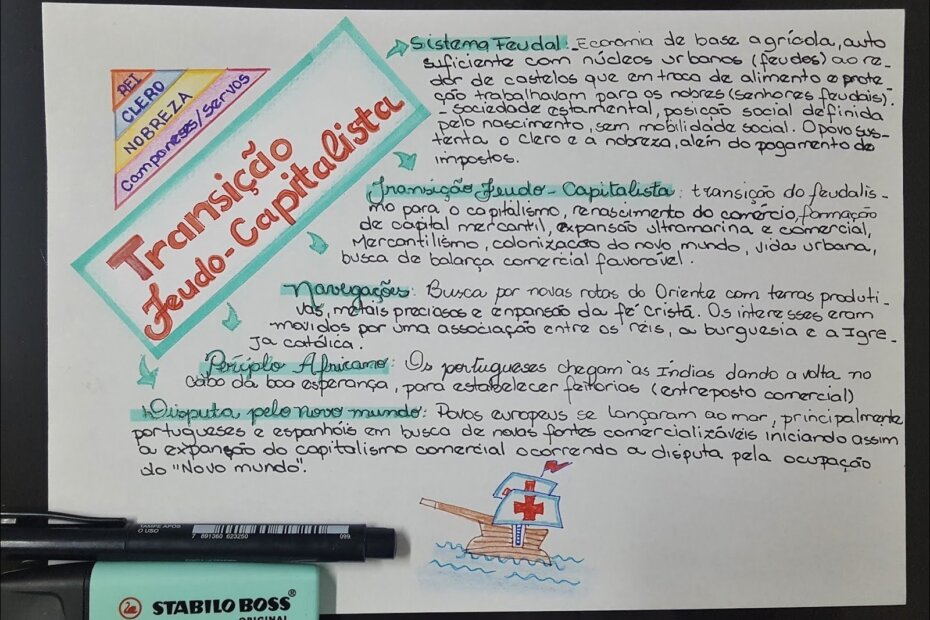 REI
CLERO
NOBREZA
Camponeses/servos
Transição
Feudo-Capitalista
Sistema Feudal: Economia de base agrícola, auto
suficiente com núcleos urbanos (feudos) ao re-
dor de castelos que em troca de alimento e prote-
ção trabalhavam para os nobres (senhores feudais).
- sociedade estamental, posição social definida
pelo nascimento, sem mobilidade social. O povo sus-
tenta o clero e a nobreza, além do pagamento de
impostos.
Transição Feudo-Capitalista: transição do feudalis-
mo para o capitalismo, renascimento do comércio, formação
de capital mercantil, expansão ultramarina e comercial,
Mercantilismo, colonização do novo mundo, vida urbana,
busca de balança comercial favorável.
Navegações: Busca por novas rotas do Oriente com terras produti-
vas, metais preciosos e expansão da fé cristã. Os interesses eram
movidos por uma associação entre os reis, a burguesia e a Igre-
ja católica.
Périplo Africano: Os portugueses chegam às Índias dando a volta no
cabo da boa esperança, para estabelecer feitorias (entreposto comercial)
Disputa pelo novo mundo: Povos europeus se lançaram ao mar, principalmente
portugueses e espanhóis em busca de novas fontes comercializáveis iniciando assim
a expansão do capitalismo comercial ocorrendo a disputa pela ocupação
do "Novo mundo".
TAMPE APÓS
O USO
7 891360 623250
099
STABILO BOSS®
ORIGINAL